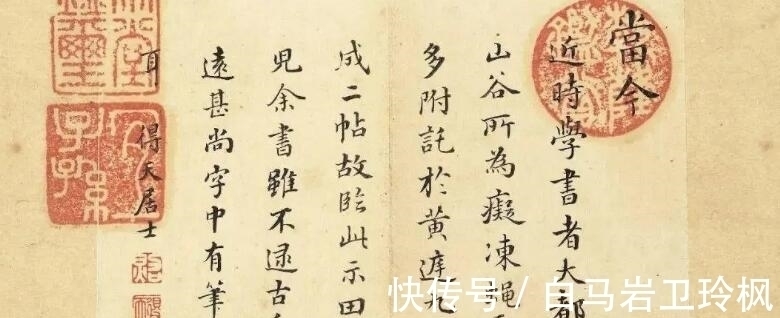 當今
近時學書者大都
山谷所為癡凍蠅
多附託於黃
成二帖故臨此示田
兒余書雖不逮古
遠甚尚字中有筆
耳 得天居士
宜子孫
快传号 / 白马岩卫玲枫